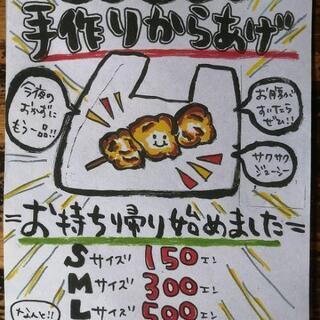 手作りからあげ
今夜の
おかずに
もう一品!!
お腹が
すいたら
ぜひ!!
サクサク
ジューシー
=お持ち帰り始めました=
Sサイズ 150エン
Mサイズ 300エン
Lサイズ 500エン
なんと!!